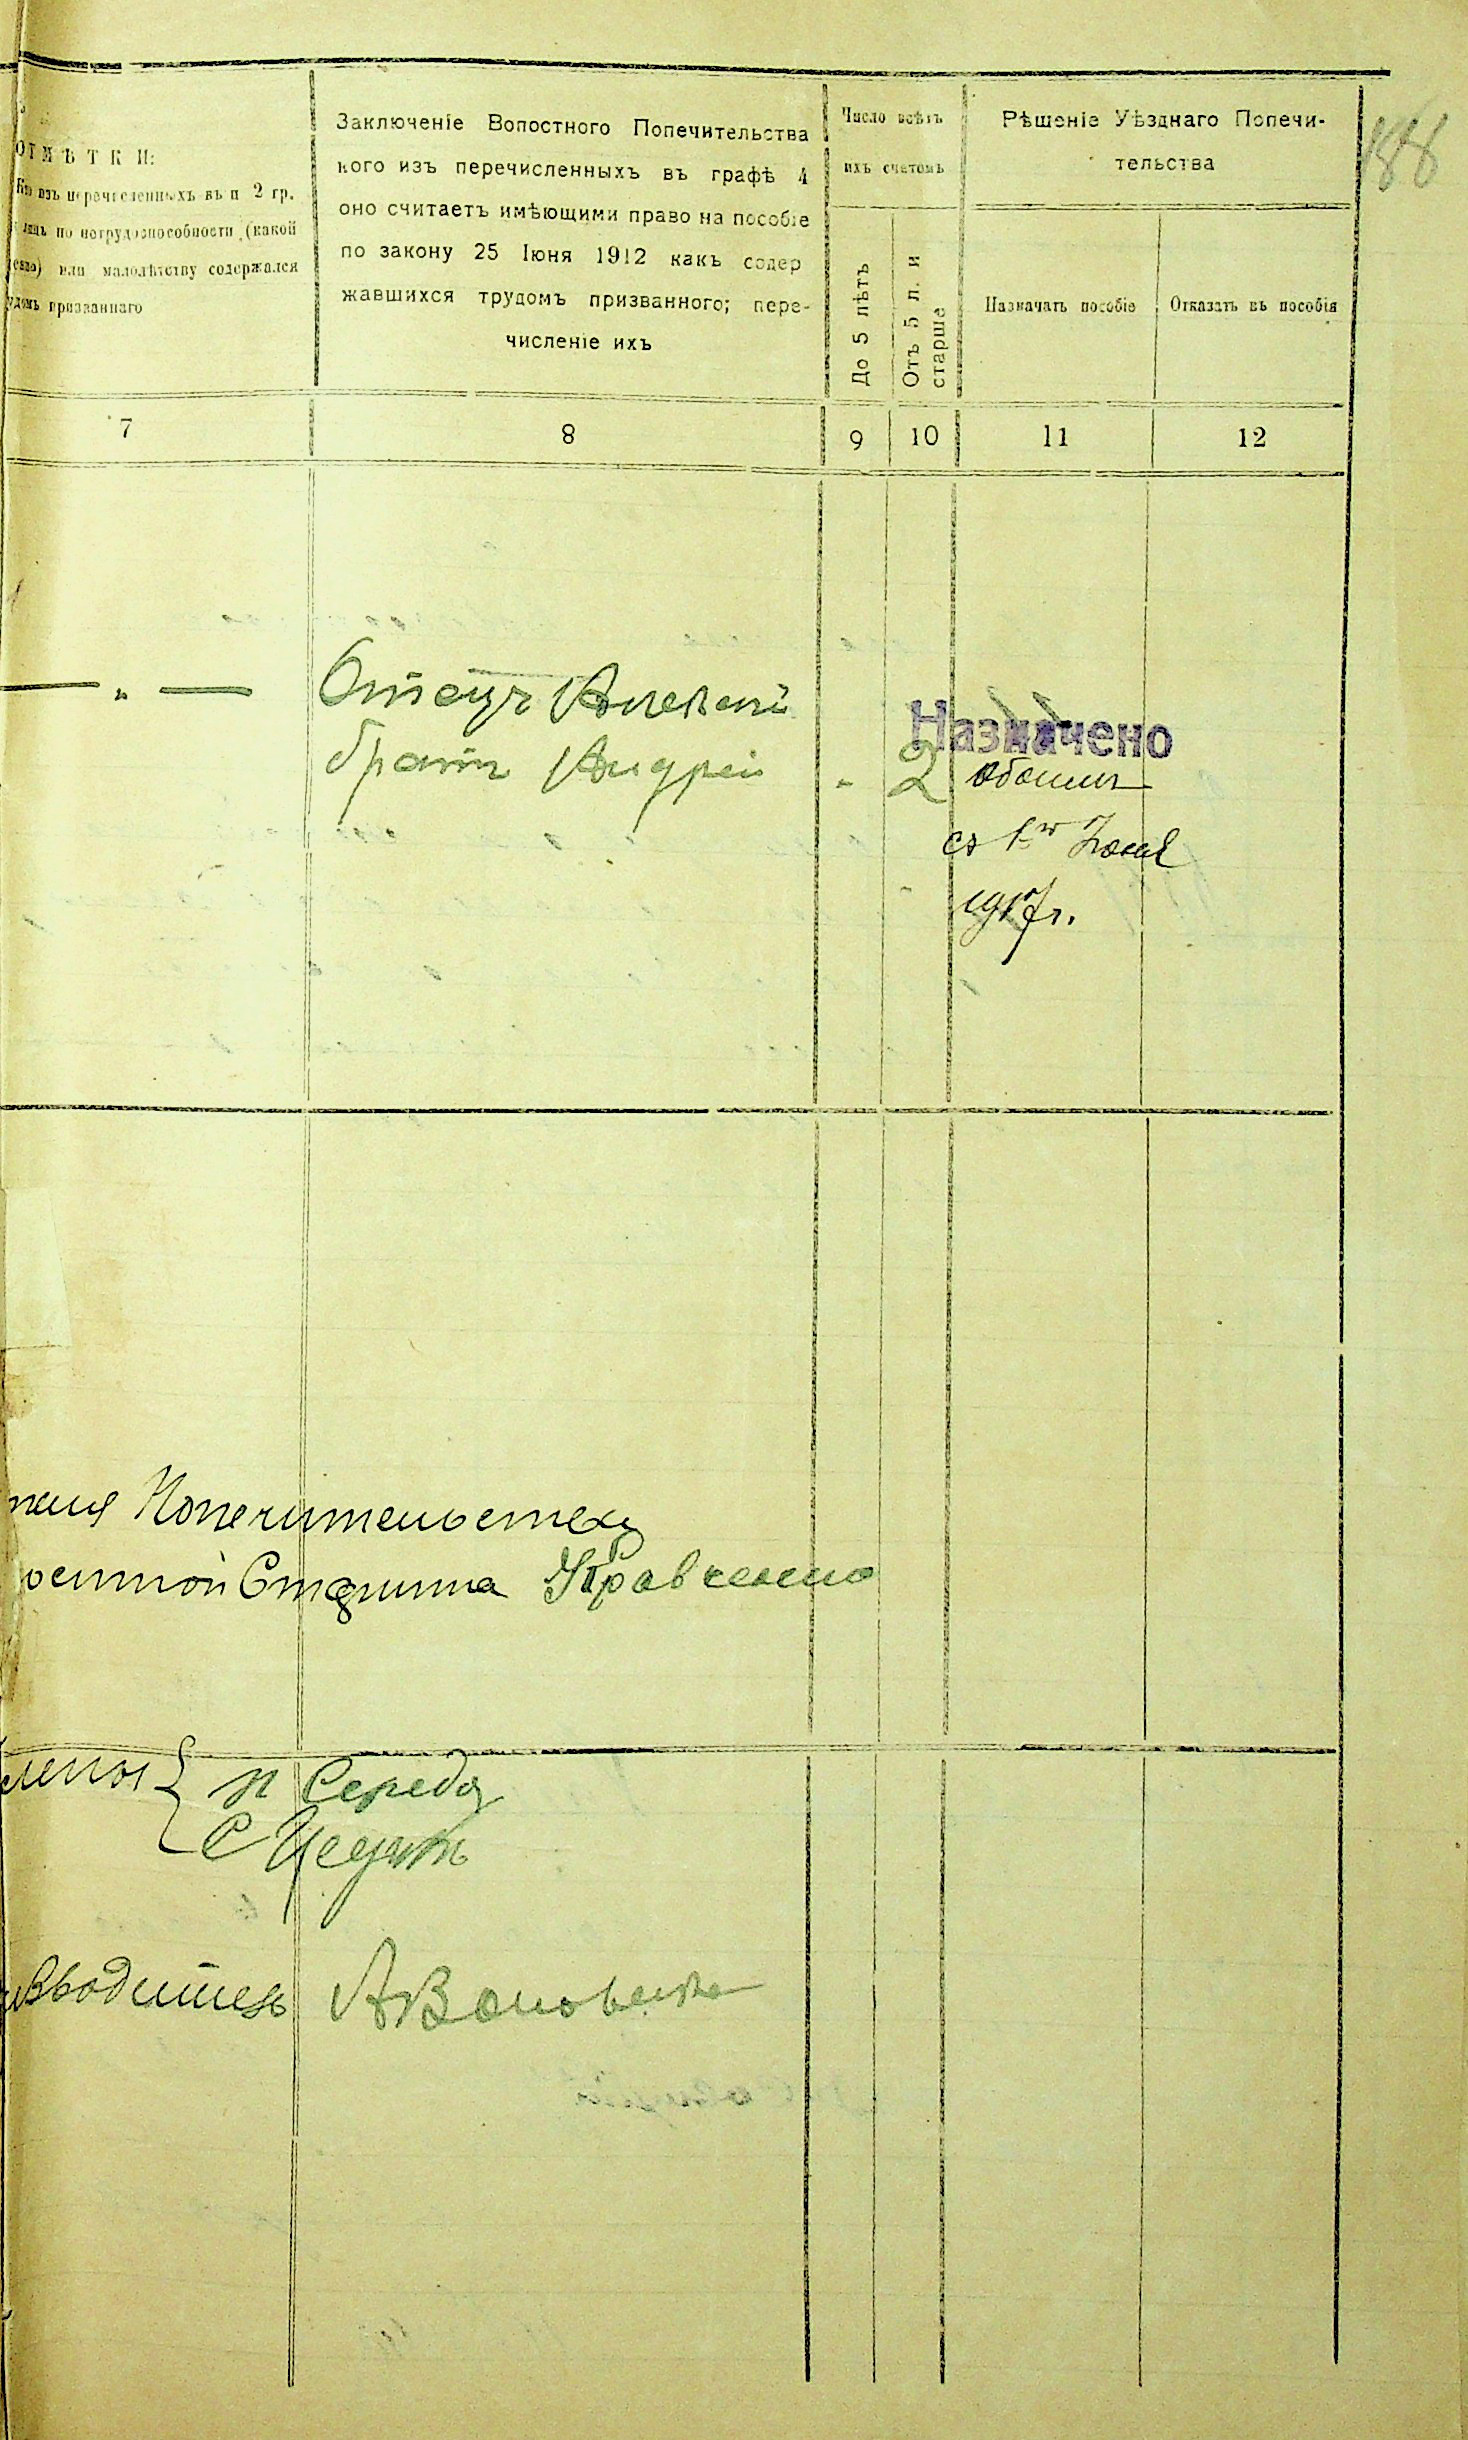 188
ОТМѢТКИ:
Кто изъ перечисленныхъ въ п 2 гр.
лицъ по нетрудоспособности (какой
) или малолѣтству содержался
удомъ призваннаго
Заключеніе Волостного Попечительства
кого изъ перечисленныхъ въ графѣ 4
оно считаетъ имѣющими право на пособіе
по закону 25 Іюня 1912 какъ содер
жавшихся трудомъ призванного; пере-
численіе ихъ
Число всѣхъ
ихъ счетомъ
До 5 лѣтъ
Отъ 5 л. и
старше
Рѣшеніе Уѣзднаго Попечи-
тельства
Назначать пособіе
Отказать въ пособія
7
8
9
10
11
12
— „ —
Отецъ Алексѣй
братъ Андрей
- 2
Назначено
обоимъ
съ 1го
1917г.
Попечительства
Старшина Кравченко
члены { П Середа
С
водитель А